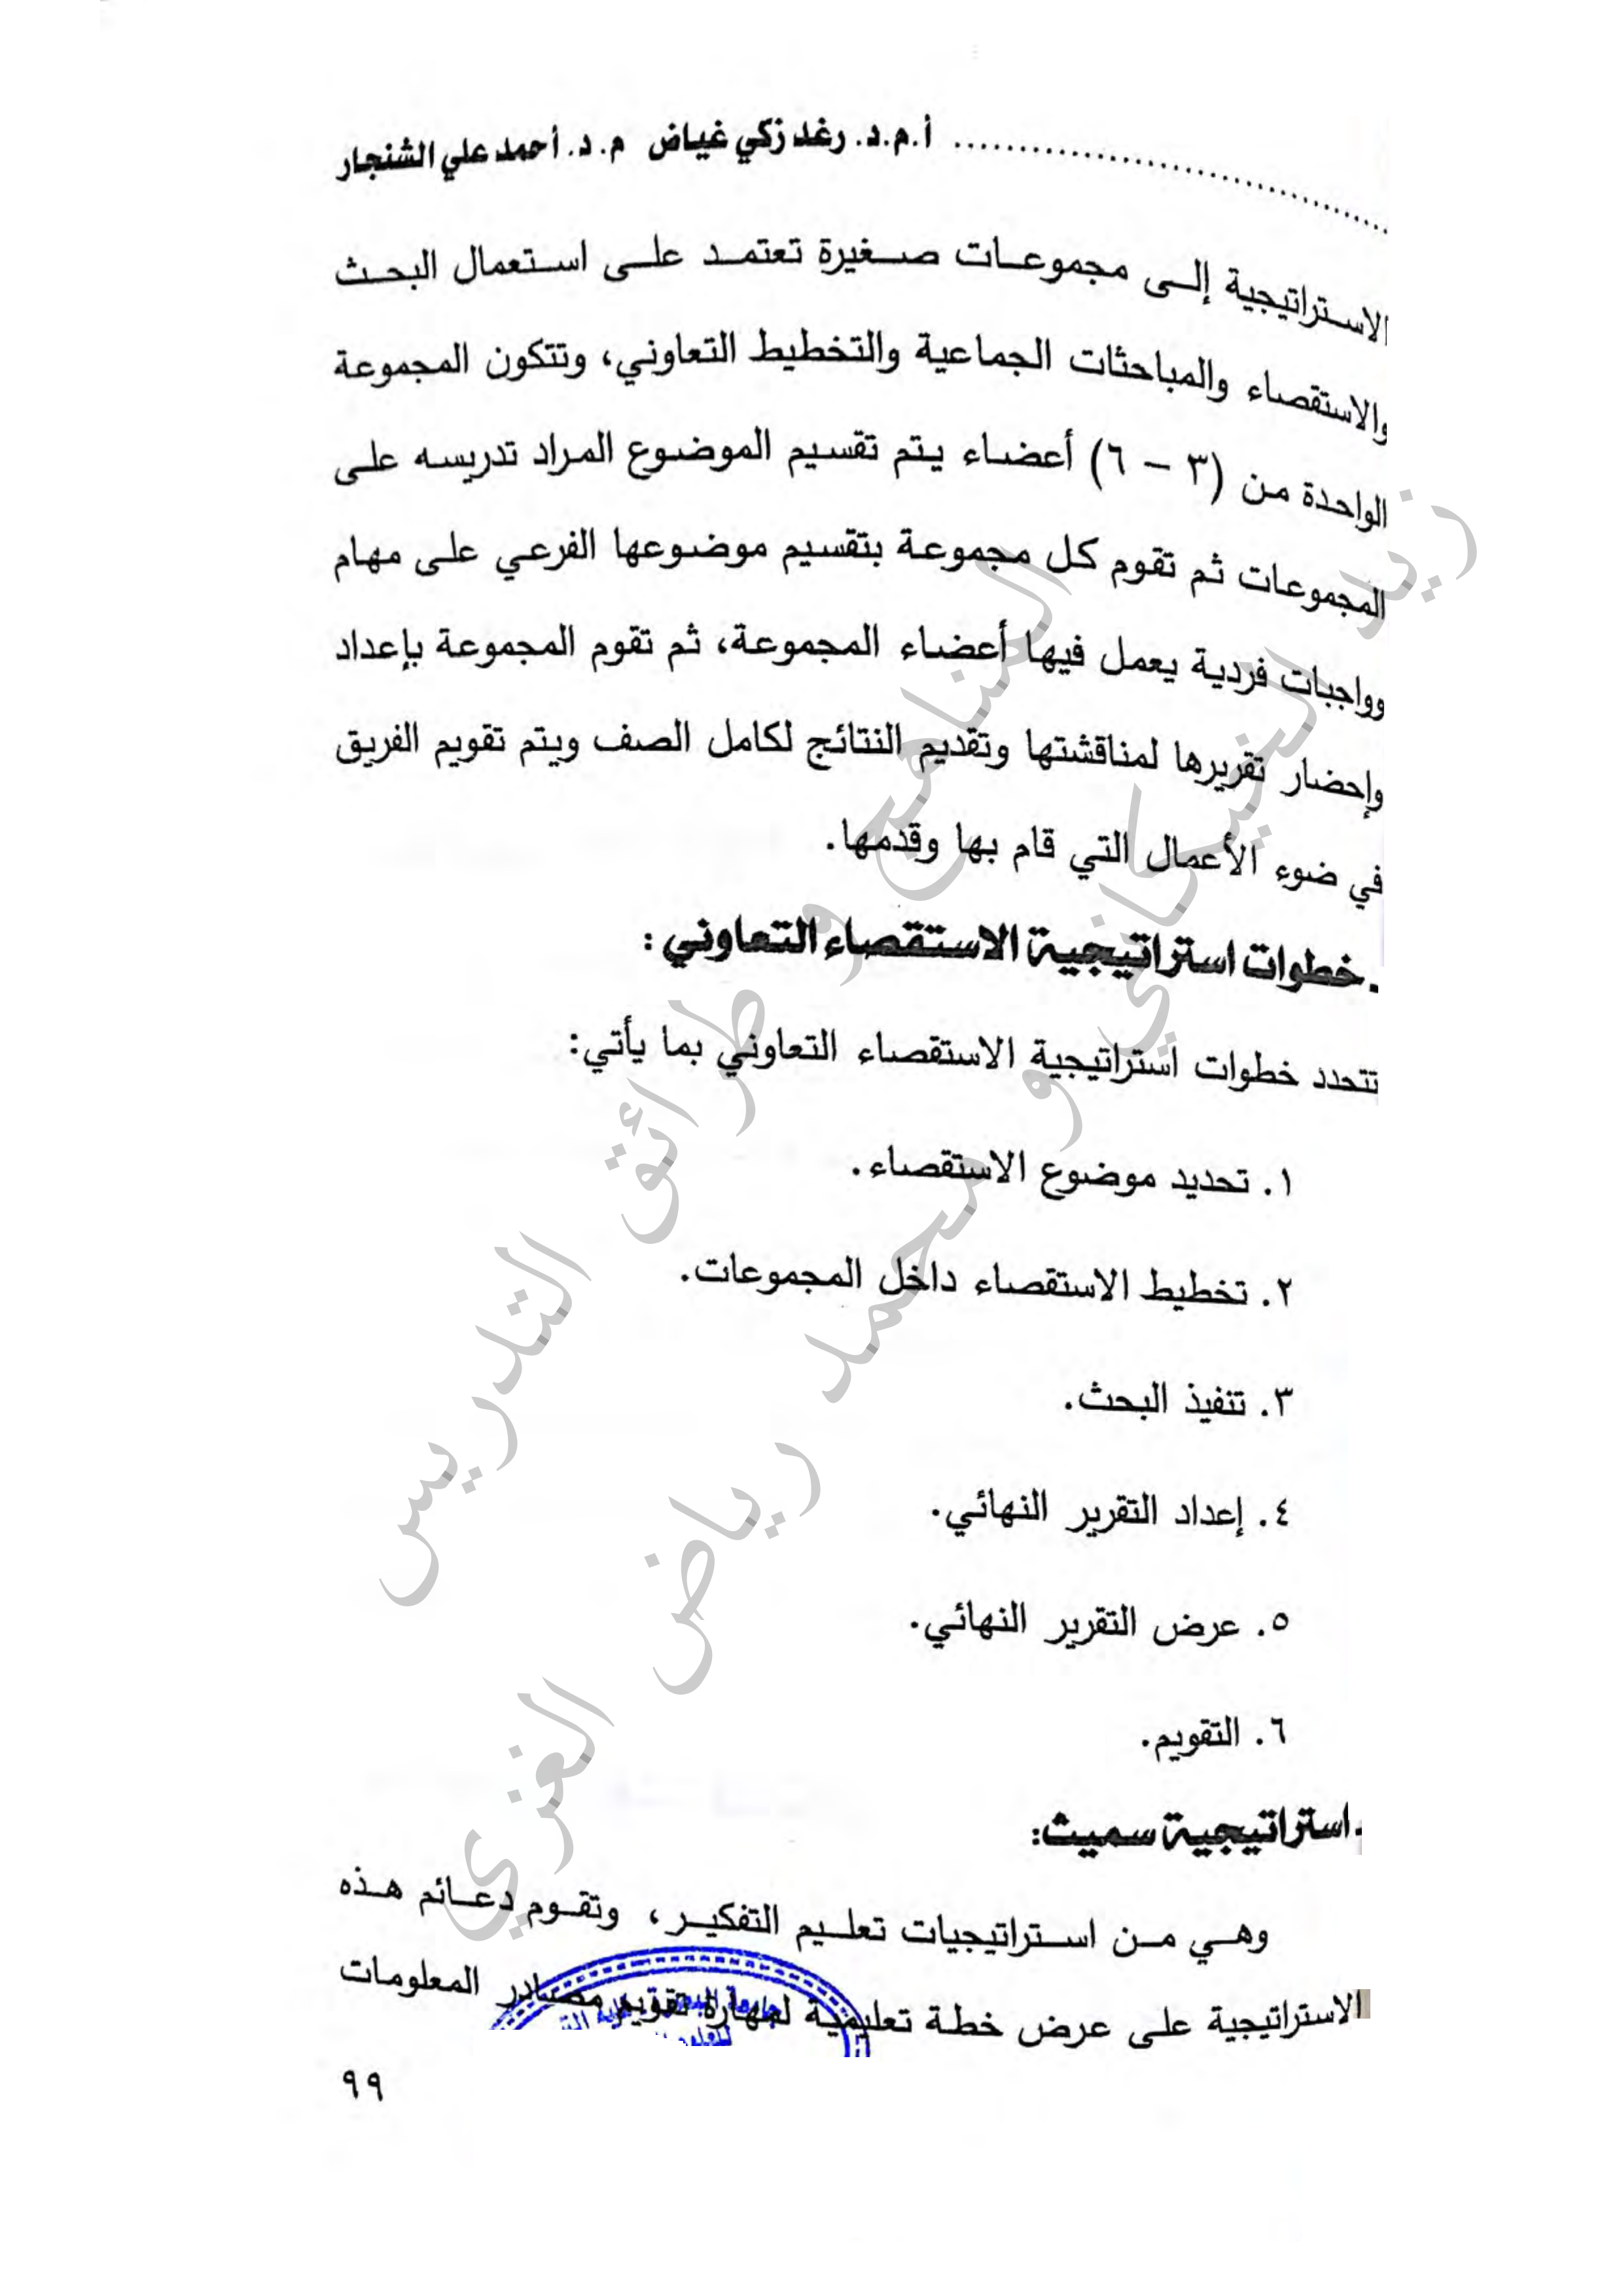 أ.م.د. رغد زكي غياض م. د. أحمد علي الشنجار
الاستراتيجية إلى مجموعات صغيرة تعتمد على استعمال البحث
والاستقصاء والمباحثات الجماعية والتخطيط التعاوني، وتتكون المجموعة
الواحدة من (٣ – ٦) أعضاء يتم تقسيم الموضوع المراد تدريسه على
المجموعات ثم تقوم كل مجموعة بتقسيم موضوعها الفرعي على مهام
وواجبات فردية يعمل فيها أعضاء المجموعة، ثم تقوم المجموعة بإعداد
وإحضار تقريرها لمناقشتها وتقديم النتائج لكامل الصف ويتم تقويم الفريق
في ضوء الأعمال التي قام بها وقدمها.
. خطوات استراتيجية الاستقصاء التعاوني :
تتحدد خطوات استراتيجية الاستقصاء التعاوني بما يأتي:
١. تحديد موضوع الاستقصاء.
٢. تخطيط الاستقصاء داخل المجموعات.
٣. تنفيذ البحث.
٤. إعداد التقرير النهائي.
٥. عرض التقرير النهائي.
٦. التقويم.
. استراتيجية سميث:
وهي من استراتيجيات تعليم التفكير، وتقوم دعائم هذه
الاستراتيجية على عرض خطة تعليمية لمهارة تقويم مصادر المعلومات
٩٩
المناهج و طرائق التدريس
زياد الخيكاني و محمد رياض الغزي